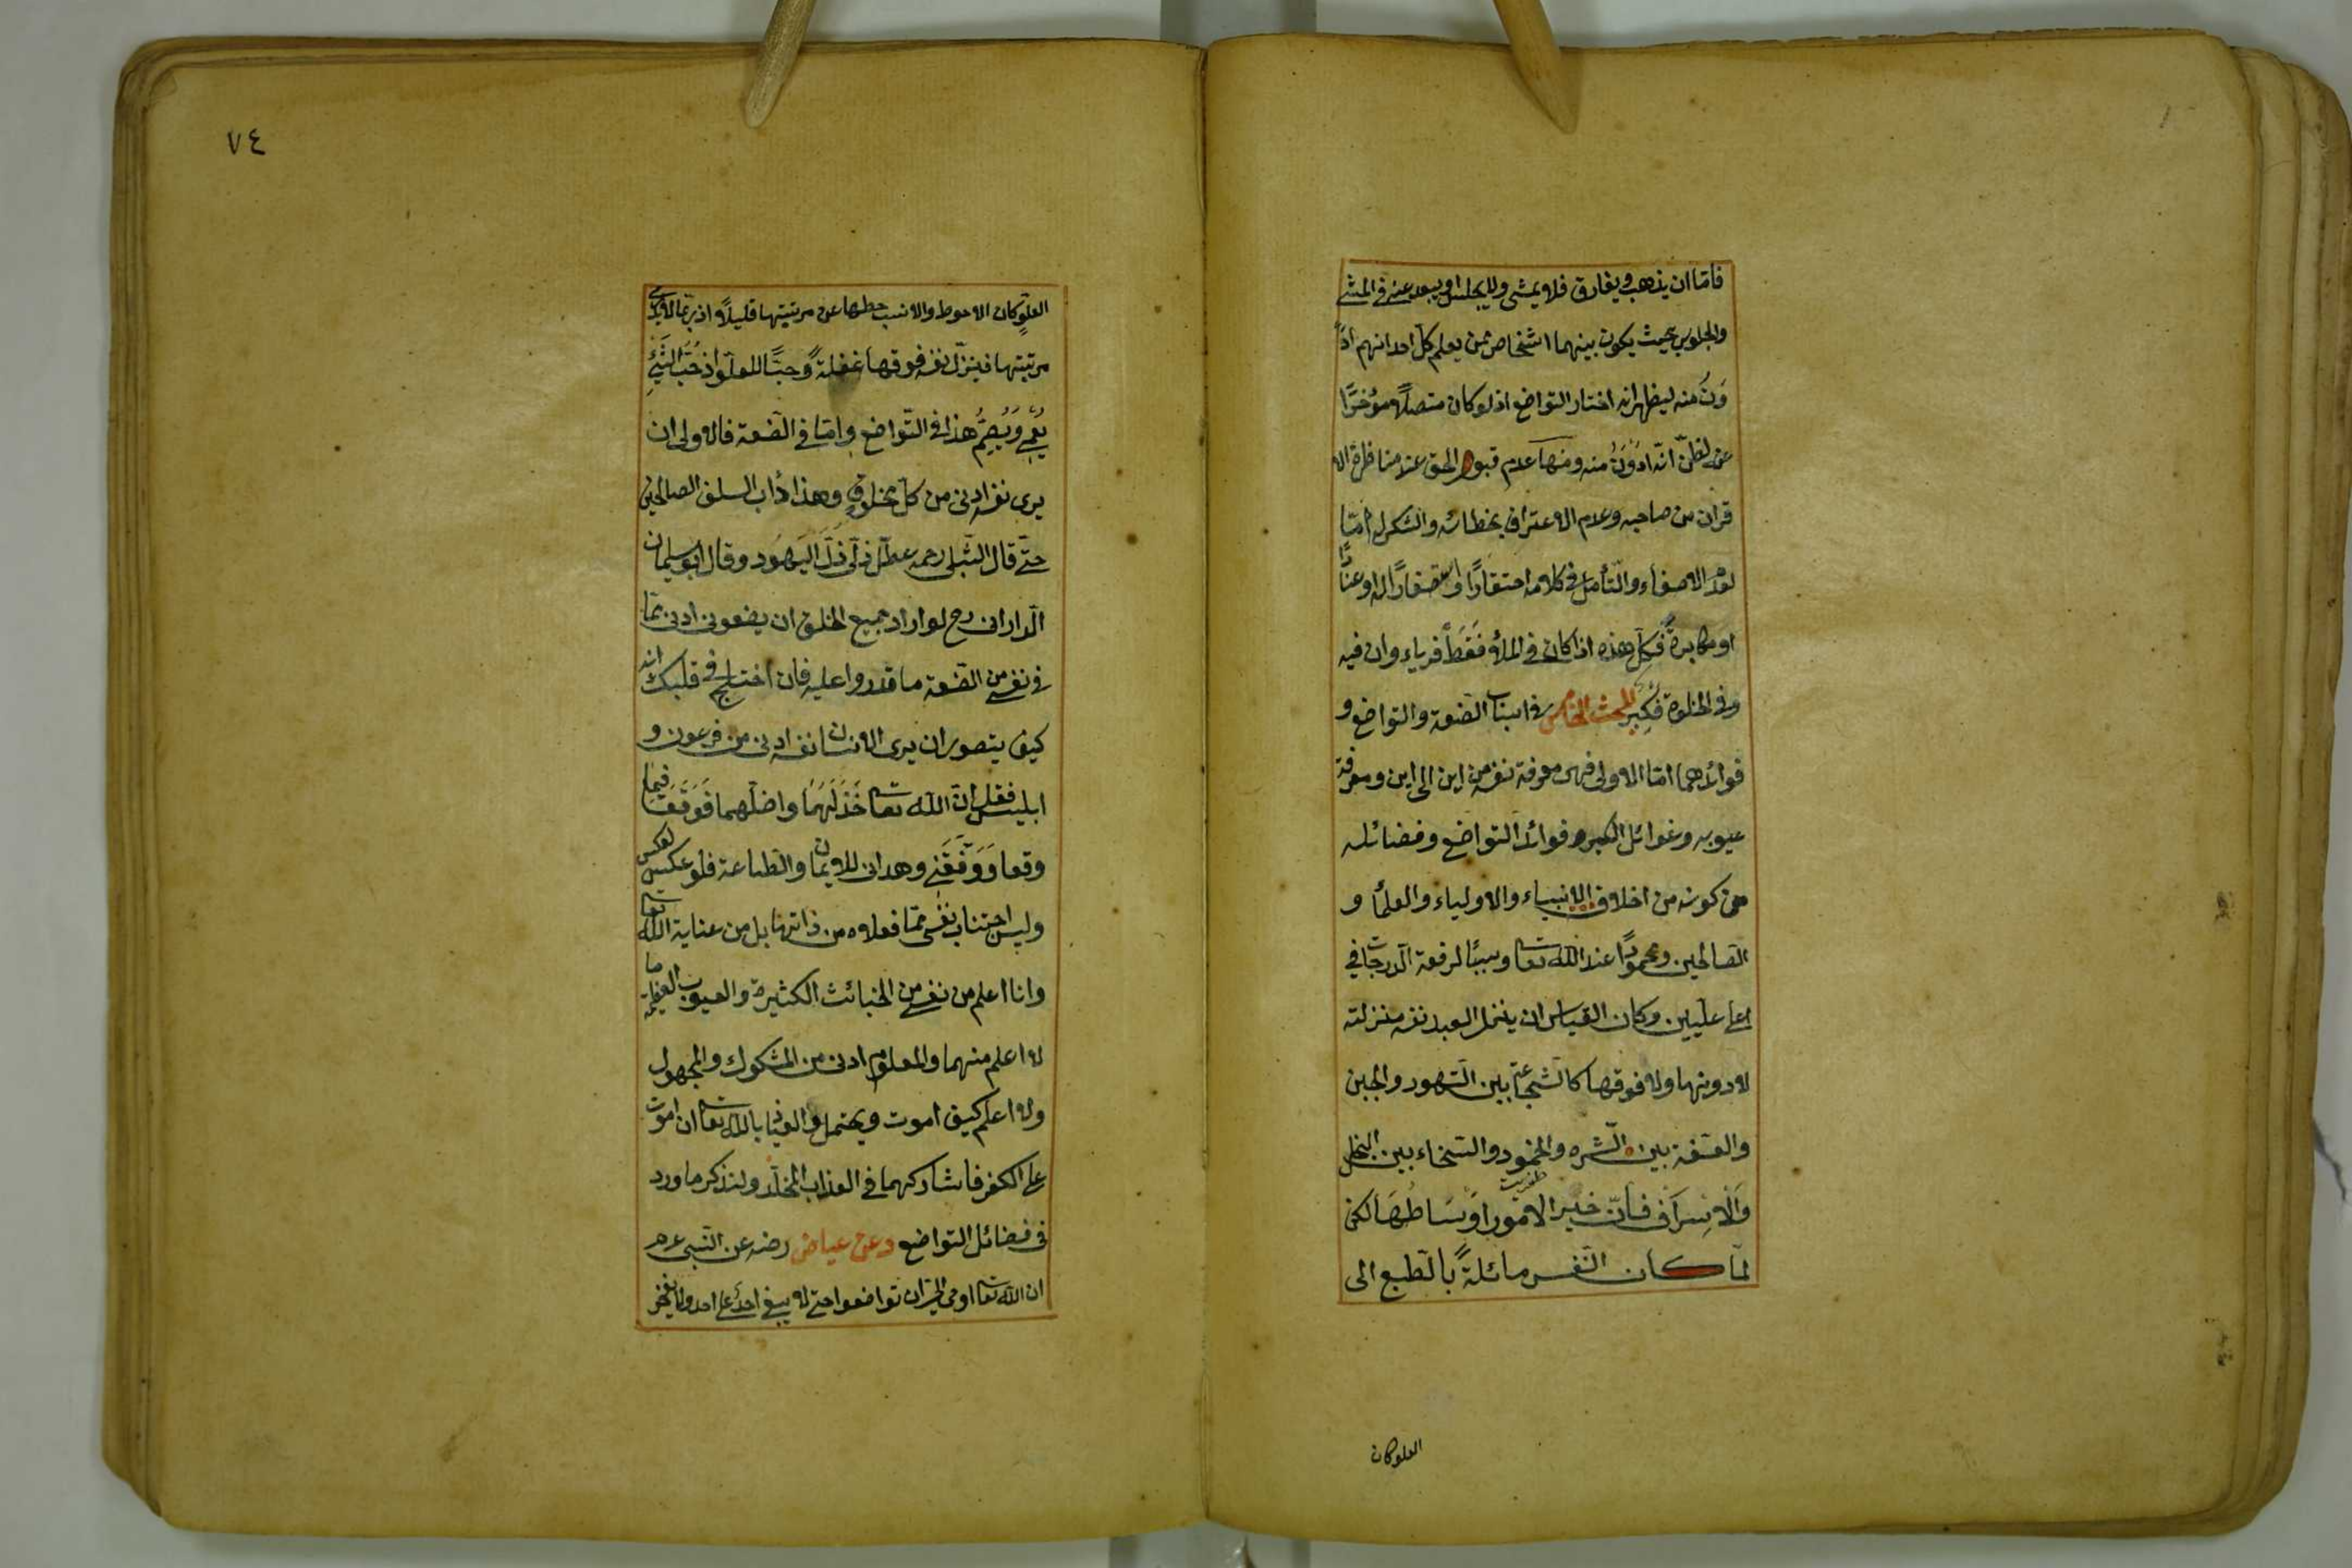 فامّا ان يذهب ويفارق فلا يمشى ولا يجلس او يبعد عنه فى المشى
والجلوس بحيث يكون بينهما اشخاص ممن يعلم كل احد انهم اد
وَنُ منه ليظهر انه اختار التواضع اذ لو كان متصلاً مؤخرًا
عنه لظنّ انّه ادون منه ومنها عدم قبول الحق عند مناظرة الا
قران من صاحبه وعدم الاعتراف بخطائه والشكر له امّا
لعدم الاصغاء والتأمل فى كلامه احتقارًا واستصغارًا له او عنادًا
او مكابرة فكلّ هذه اذا كان فى الملأ فَقَط فرياء وان فيه
وفى الخلوة فكبر المبحث الخامس فى اسباب الضعة والتواضع و
فوائدهما امّا الاولى فهى معرفة نفسه من اين الى اين ومعرفة
عيوبه وغوائل الكبر وفوائد التواضع وفضائله
من كونه من اخلاق الانبياء والاولياء والعلماء و
الصالحين ومحمودًا عند الله تعالى وسببًا لرفعة الدرجات فى
اعلى عليين وكان القياس ان ينزل العبد نفسه منزلته
لا دونها ولا فوقها كالشجاعة بين التهور والجبن
والعفّة بين الشره والخمود والسخاء بين البخل
وَالاِسراف فانّ خير الامور اَوسَاطُهَا لكن
لمّا كان النّفس مائلةً بالطبع الى
العلو كان
٧٤
العلوّ كان الاحوط والانسب حطها عن مرتبتها قليلاً اذ ربّما لا يدرى
مرتبتها فينزل نفسه فوقها غفلةً وحبًّا للعلوّ اذ حُبّ الشّئ
يُعمِى وَيُصِمُّ هذا فى التّواضع وامّا فى الضعة فالاولى ان
يرى نفسه ادنى من كلّ مخلوقٍ وهذا دأب السلف الصالحين
حتّى قال الشّبلى رحمه عطّل ذلّى ذلّ اليهُود وقال ابو سليمان
الدّارانى رح لو اراد جميع الخلق ان يضعونى ادنى ممّا
فى نفسى من الضعة ما قدروا عليه فان اختلج فى قلبك انه
كيف يتصور ان يرى الانسان نفسه ادنى من فرعون و
ابليس فقل انّ الله تعالى خَذَلَهُمَا واضلّهما فَوَقَعَا فيما
وقعا وَوَفَّقَنِى وهدانى للايمان والطّاعة فلو عكس لعكس
وليس اجتناب نفسى ممّا فعلاه من ذاتها بل من عناية الله تعالى
وانا اعلم من نفسى من الخبائث الكثيرة والعيوب العظيمة ما
لا اعلم منهما والمعلوم ادنى من المشكوك والمجهول
ولا اعلم كيف اموت ويحتمل والعياذ بالله تعالى ان اموت
على الكفر فاشاركهما فى العذاب المخلّد ولنذكر ما ورد
فى فضائل التواضع وعن عياض رضه عن النّبى عم
ان الله تعالى اوحى الىّ ان تواضعوا حتى لا يبغى احد على احد ولا يفخر